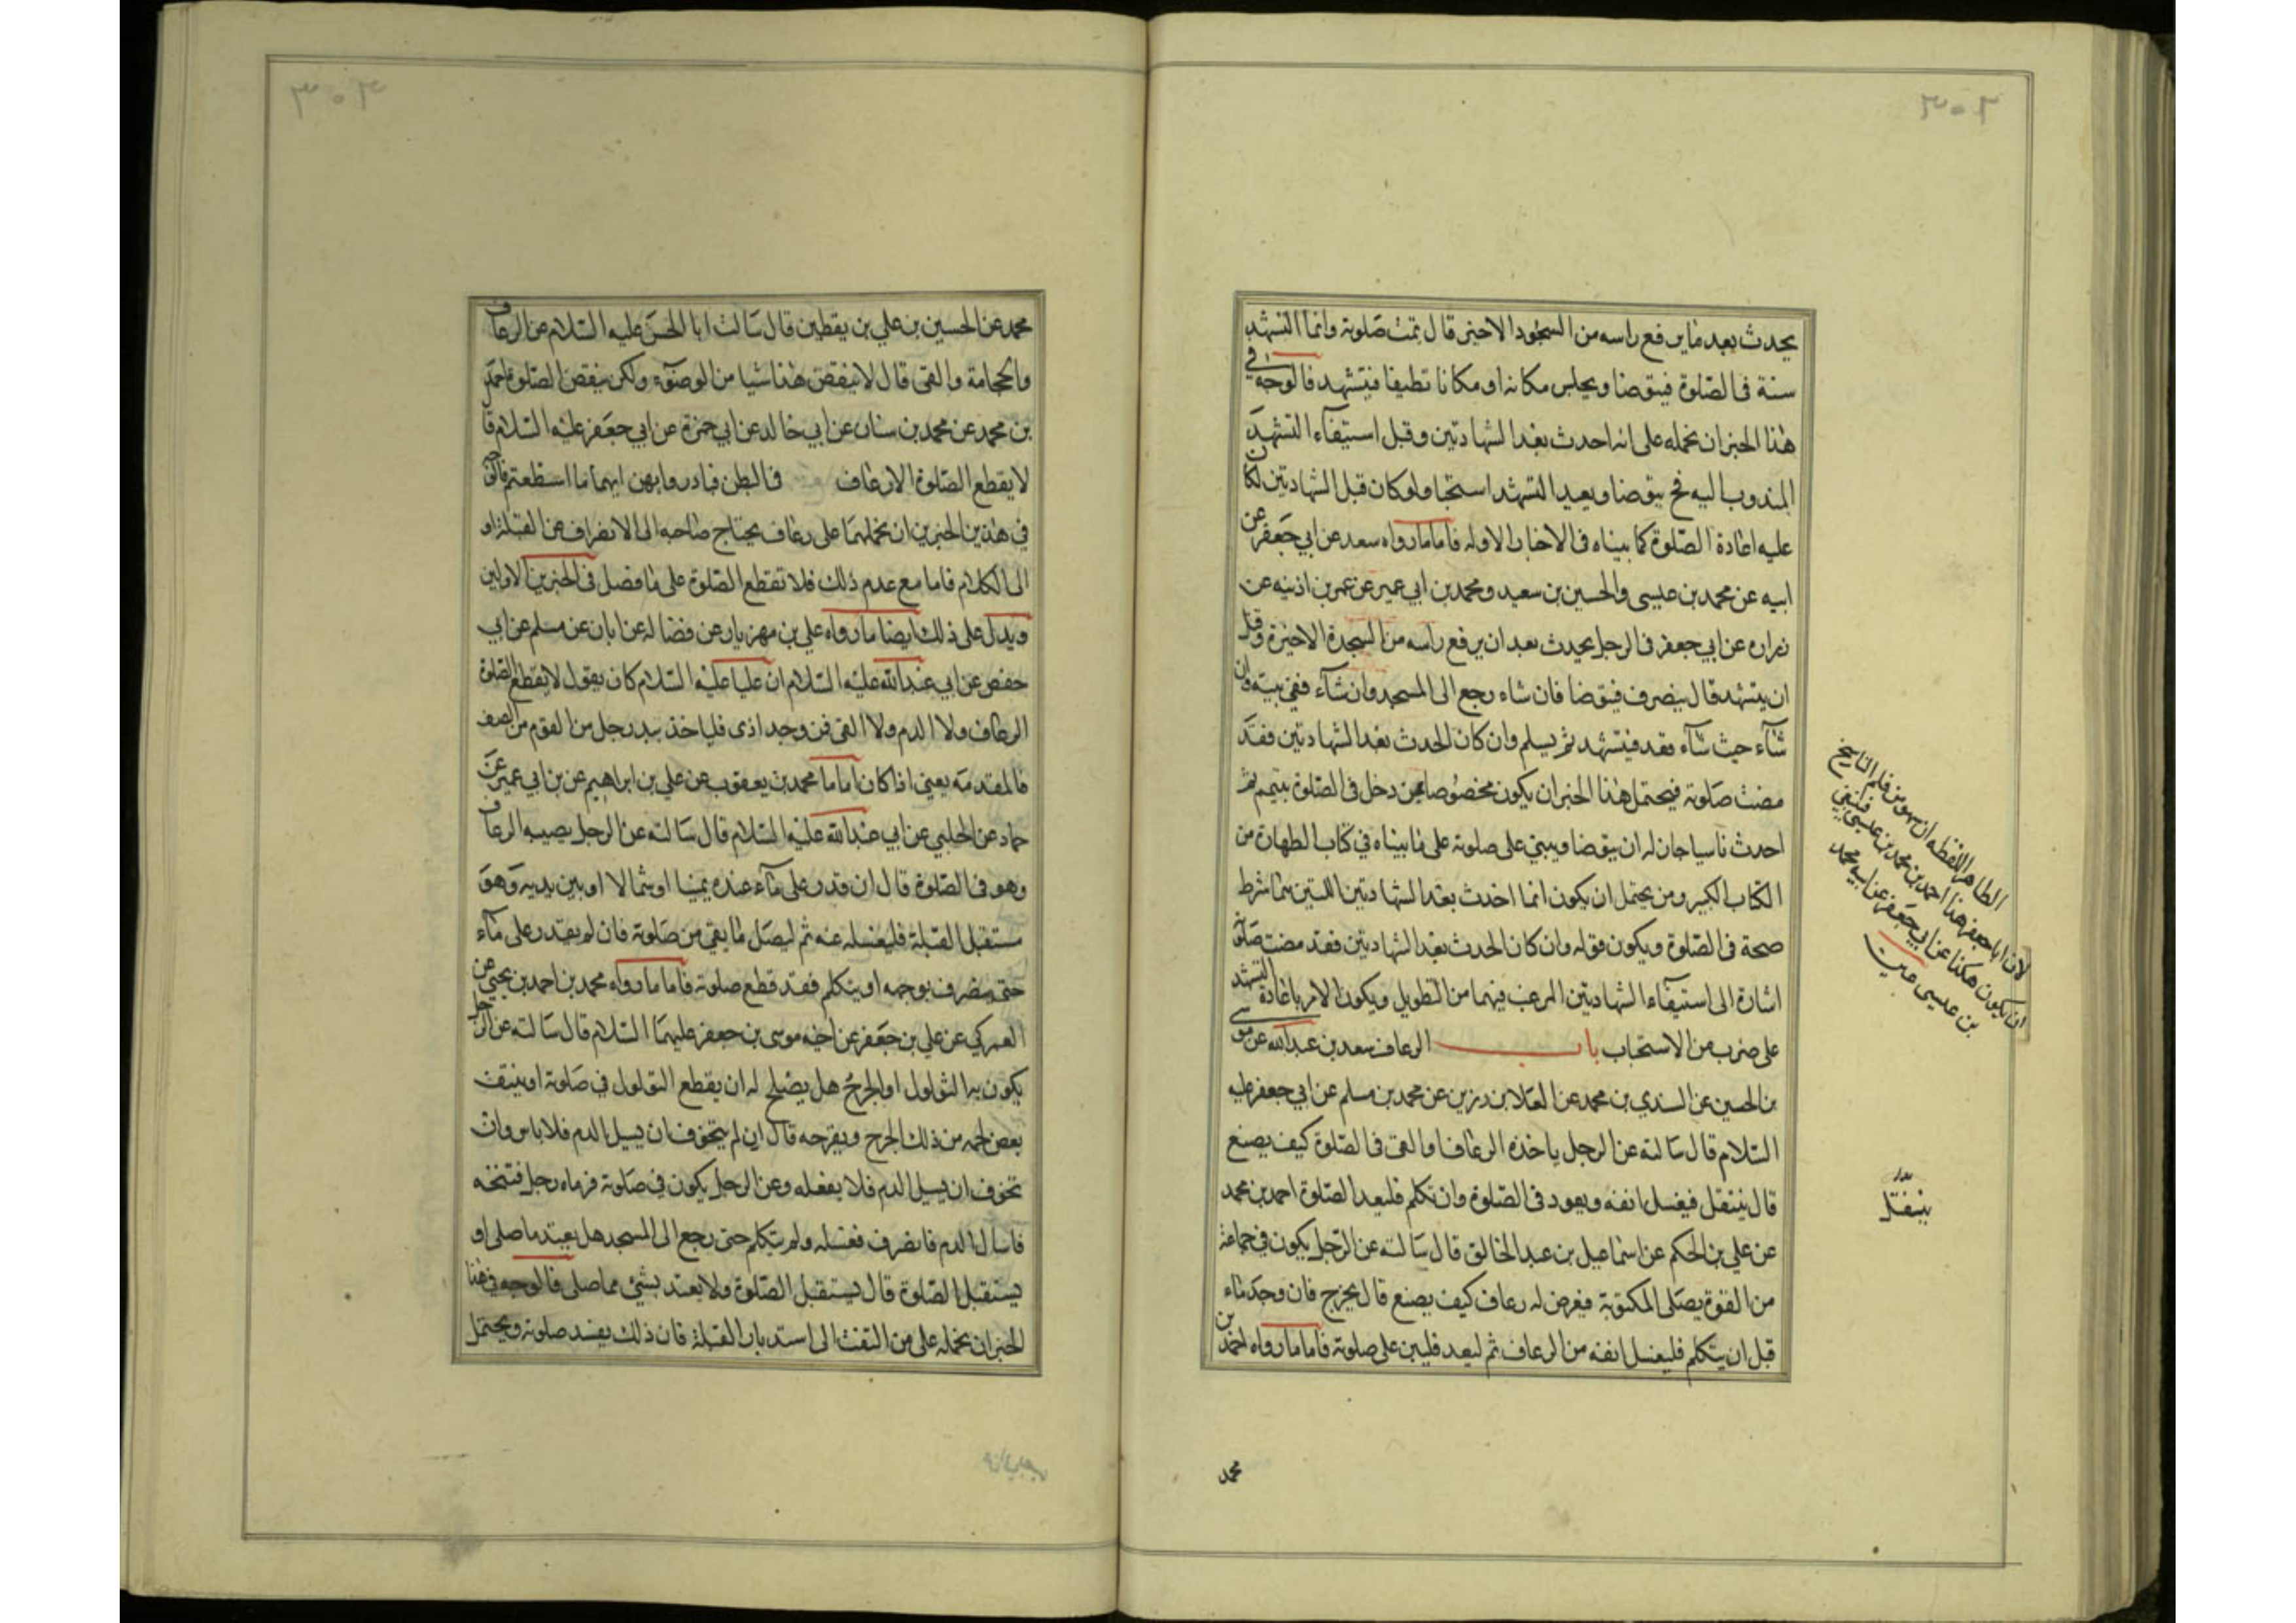 ٣٠٢
يحدث بعد ما يرفع راسه من السجود الاخير قال تمت صلوته وانما التشهد
سنة في الصلوة فيتوضا ويجلس مكانه او مكانا نظيفا فيتشهد فالوجه في
هذا الخبر ان نحمله على انه احدث بعد الشهادتين وقبل استيفاء التشهد
المندوب اليه فح يتوضا ويعيد التشهد استحبابا ولو كان قبل الشهادتين لكان
عليه اعادة الصلوة كما بيناه في الاخبار الاوله فاما ما رواه سعد عن ابي جعفر عن
ابيه عن محمد بن عيسى والحسين بن سعيد ومحمد بن ابي عمير عن عمر بن اذينه عن
زراره عن ابي جعفر في الرجل يحدث بعد ان يرفع راسه من السجدة الاخيرة وقبل
ان يتشهد قال ينصرف فيتوضا فان شاء رجع الى المسجد وان شآء ففي بيته وان
شآء حيث شآء فقعد فيتشهد ثم يسلم وان كان الحدث بعد الشهادتين فقد
مضت صلوته فيحتمل هذا الخبر ان يكون مخصوصا بمن دخل في الصلوة بتيمم ثم
احدث ناسيا جاز له ان يتوضا ويبني على صلوته على ما بيناه في كتاب الطهارة من
الكتاب الكبير ومن يحتمل ان يكون انما احدث بعد الشهادتين اللتين هما شرط
صحة في الصلوة ويكون قوله وان كان الحدث بعد الشهادتين فقد مضت صلوته
اشارة الى استيفاء الشهادتين المرغب فيهما من التطويل ويكون الامر باعادة التشهد
على ضرب من الاستحباب باب الرعاف سعد بن عبد الله عن موسى
بن الحسين عن السندي بن محمد عن العلا بن رزين عن محمد بن مسلم عن ابي جعفر عليه
السلام قال سالته عن الرجل ياخذه الرعاف او القى في الصلوة كيف يصنع
قال ينتقل فيغسل انفه ويعود في الصلوة وان تكلم فليعد الصلوة احمد بن محمد
عن علي بن الحكم عن اسماعيل بن عبد الخالق قال سالته عن الرجل يكون في جماعة
من القوة يصلى المكتوبة فيعرض له رعاف كيف يصنع قال يخرج فان وجد ماء
قبل ان يتكلم فليغسل انفه من الرعاف ثم ليعد فليبن على صلوته فاما ما رواه احمد بن
الظاهر لفظه ان سهو من قلم الناسخ
لان ابا جعفر هذا احمد بن محمد بن عيسى فينبغي
ان يكون هكذا عن ابي جعفر عن ابيه محمد
بن عيسى
ينتقل
محمد
٣٠٣
محمد عن الحسين بن علي بن يقطين قال سالت ابا الحسن عليه السلام عن الرعاف
والحجامة والقى قال لا ينقض هذا شيا من الوضوء ولكن ينقض الصلوة احمد
بن محمد عن محمد بن سنان عن ابي خالد عن ابي حمزة عن ابي جعفر عليه السلام قا
لا يقطع الصلوة الا رعاف في البطن فبادروا بهن ايهما ما استطعتم فالوجه
في هذين الخبرين ان نحملهما على رعاف يحتاج صاحبه الى الانصراف عن القبلة او
الى الكلام فاما مع عدم ذلك فلا تقطع الصلوة على ما فصل في الخبرين الاولين
ويدل على ذلك ايضا ما رواه علي بن مهزيار عن فضاله عن ابان عن مسلم عن ابي
حفص عن ابي عبد الله عليه السلام ان عليا عليه السلام كان يقول لا يقطع الصلوة
الرعاف ولا الدم ولا القى فمن وجد اذى فلياخذ بيد رجل من القوم من الصف
فالمقدمه يعني اذا كان اماما محمد بن يعقوب عن علي بن ابراهيم عن بن ابي عمير عن
حماد عن الحلبي عن ابي عبد الله عليه السلام قال سالته عن الرجل يصيبه الرعاف
وهو في الصلوة قال ان قدر على مآء عنده يمينا او شمالا او بين يديه وهو
مستقبل القبلة فليغسله عنه ثم ليصل ما بقي من صلوته فان لم يقدر على مآء
حتى ينصرف بوجهه او يتكلم فقد قطع صلوته فاما ما رواه محمد بن احمد بن يحيى عن
العمركي عن علي بن جعفر عن اخيه موسى بن جعفر عليهما السلام قال سالته عن الرجل
يكون به الثولول او الجرح هل يصلح له ان يقطع الثولول في صلوته او ينتف
بعض لحمه من ذلك الجرح ويقرحه قال ان لم يتخوف ان يسيل الدم فلا باس وان
تخوف ان يسيل الدم فلا يفعله وعن الرجل يكون في صلوته فرماه رجل فشجه
فاسال الدم فانصرف فغسله ولم يتكلم حتى رجع الى المسجد هل يعيد ما صلى او
يستقبل الصلوة قال يستقبل الصلوة ولا يعتد بشئ مما صلى فالوجه في هذا
الخبر ان نحمله على من التفت الى استدبار القبلة فان ذلك يفسد صلوته ويحتمل